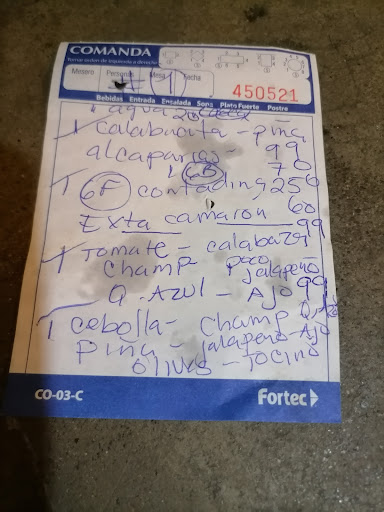 COMANDA
Tomar orden de izquierda a derecha
Mesero Personas Mesa Fecha
1
450521
Bebidas Entrada Ensalada Sopa Plato Fuerte Postre
1 agua
1 calabacita - piña
alcaparras - 99
1 GB 70
1 GF contadina 250
Exta camaron 60
99
1 Tomate - calabaza
champ poco jalapeño
Q. AZUL - AJO 99
1 cebolla - champ
piña - jalapeño - Ajo
olivas - Tocino
CO-03-C
Fortec